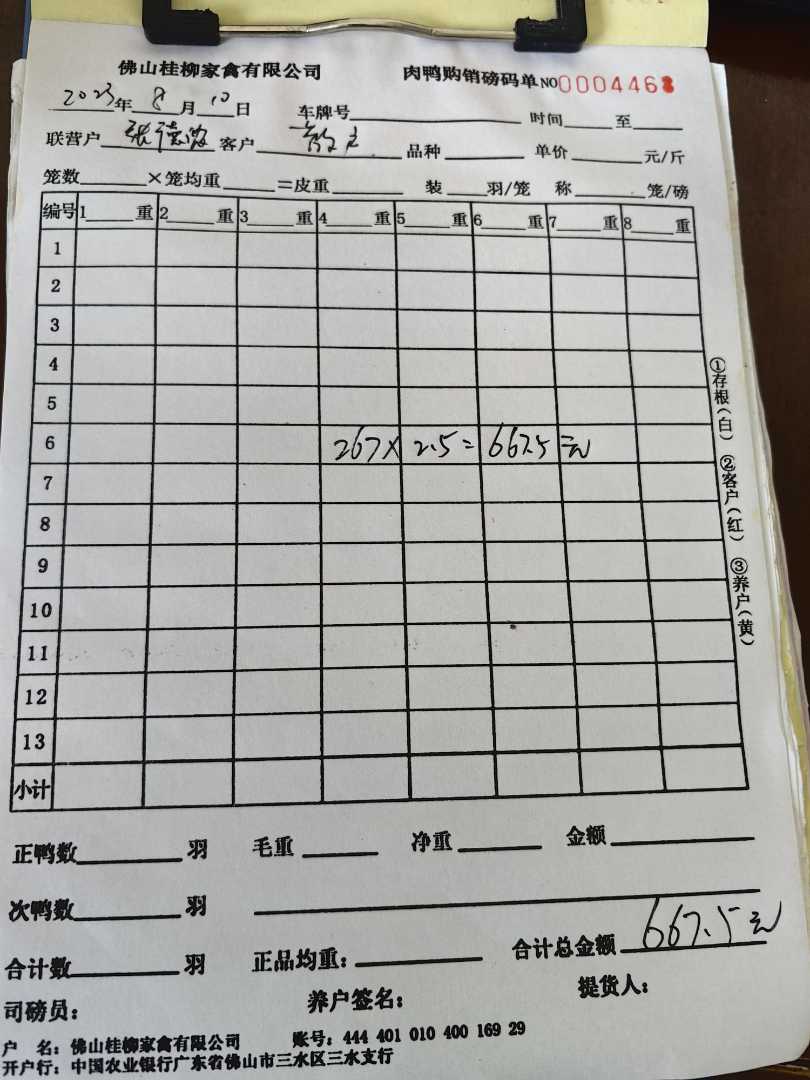 佛山桂柳家禽有限公司 肉鸭购销磅码单 NO 0004468
2023年 8 月 10 日 车牌号 时间 至
联营户 张德 客户 散户 品种 单价 元/斤
笼数 ×笼均重 =皮重 装 羽/笼 称 笼/磅
编号 1 重 2 重 3 重 4 重 5 重 6 重 7 重 8 重
1
2
3
4
5
6 267 × 2.5 = 667.5 元
7
8
9
10
11
12
13
小计
①存根(白) ②客户(红) ③养户(黄)
正鸭数 羽 毛重 净重 金额
次鸭数 羽
合计数 羽 正品均重: 合计总金额 667.5 元
司磅员: 养户签名: 提货人:
户 名: 佛山桂柳家禽有限公司 账号: 444 401 010 400 169 29
开户行: 中国农业银行广东省佛山市三水区三水支行